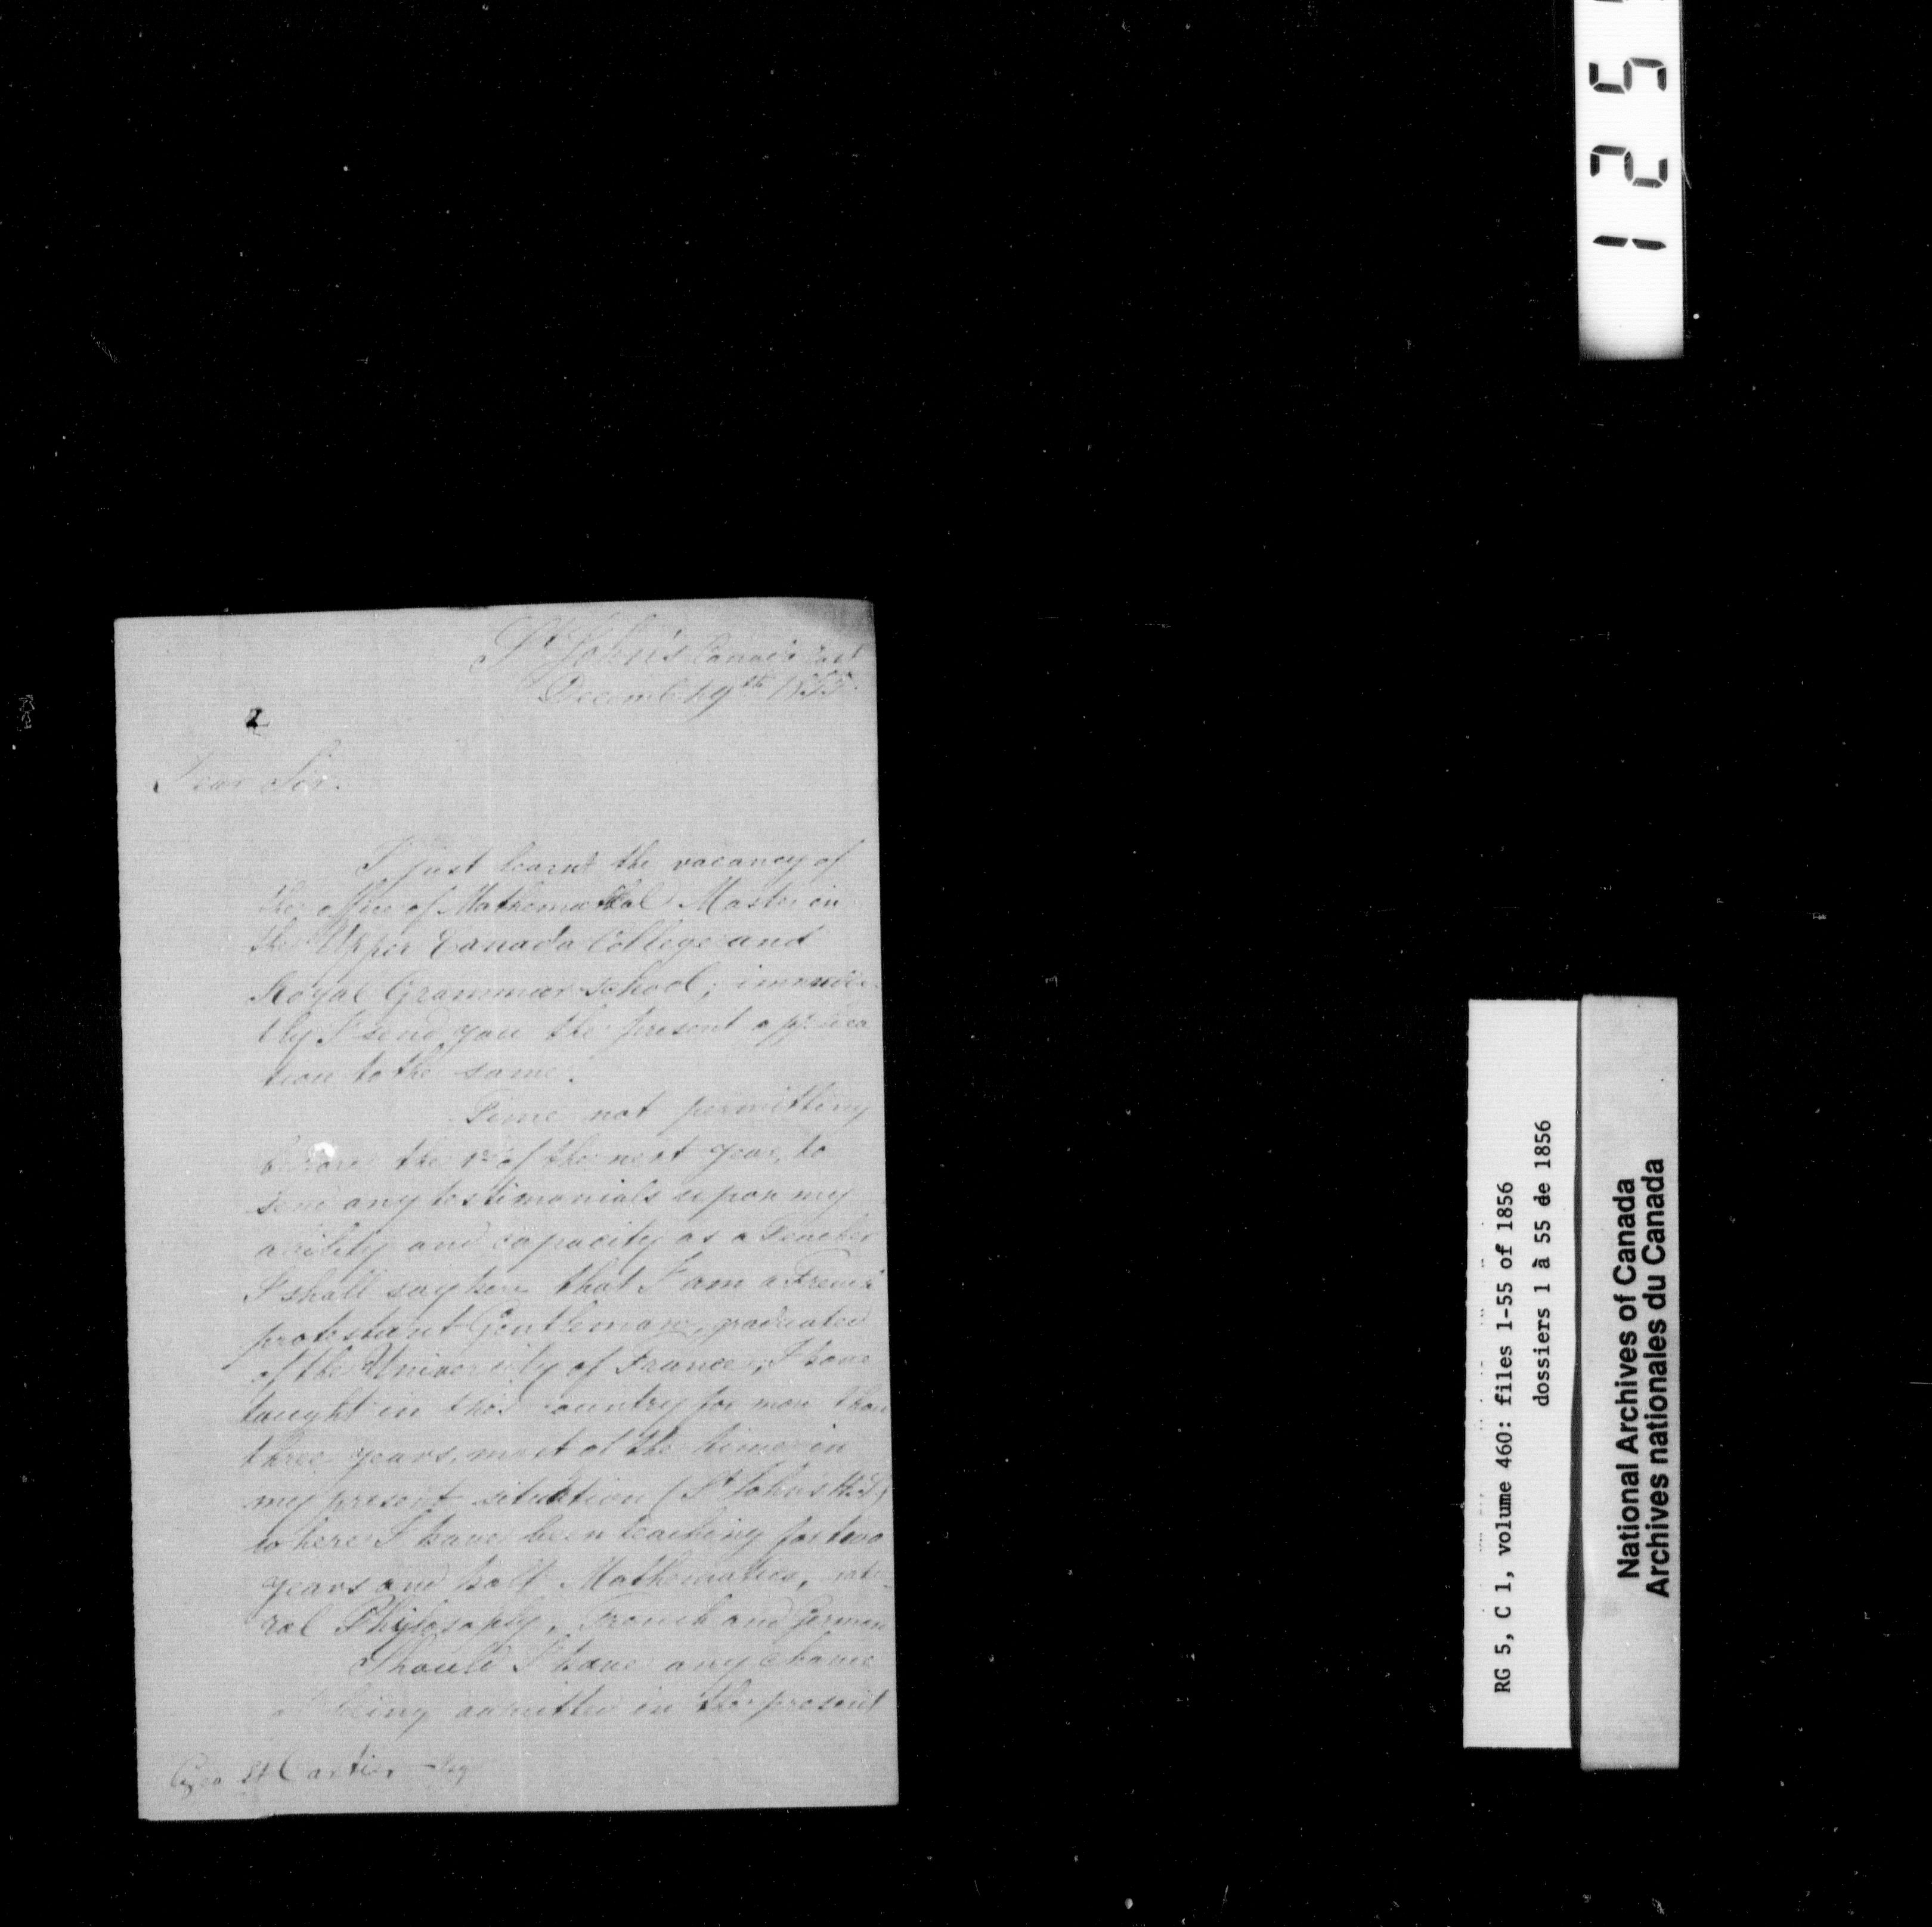 St John's Canada East
Decemb. 29th 1855.
2
Dear Sir.
I just learnt the vacancy of
the office of Mathematical Master in
the Upper Canada College and
Royal Grammar school; immedia-
tly I send you the present applica
tion to the same.
Time not permitting
before the 1st of the next year, to
send any testimonials upon my
ability and capacity as a Teacher
I shall say here that I am a French
protestant Gentleman, graduated
of the University of France; I have
taught in this country for more than
three years, most of the time in
my present situation (St John's H.S)
where I have been teaching for two
years and half Mathematics, natu-
ral Philosophy, French and German
Should I have any chance
of being admitted in the present
Geo Et Cartier Esq
125
RG 5, C 1, volume 460: files 1-55 of 1856
dossiers 1 à 55 de 1856
National Archives of Canada
Archives nationales du Canada